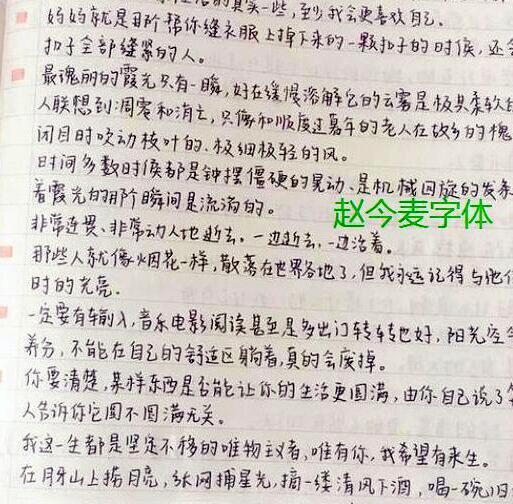 的其实一些,至少我会更喜欢自己。
妈妈就是那个帮你缝衣服上掉下来的一颗扣子的时候,还会
扣子全部缝紧的人。
最瑰丽的霞光只有一瞬,好在缓慢溶解它的云雾是极其柔软的
人联想到凋零和消亡,只像和顺度过暮年的老人在故乡的槐
闭目时吹动枝叶的、极细极轻的风。
时间多数时候都是钟摆僵硬的晃动、是机械回旋的发条
着霞光的那个瞬间是流淌的。
赵今麦字体
非常连贯、非常动人地逝去。一边逝去,一边活着。
那些人就像烟花一样,散落在世界各地了,但我永远记得与他们
时的光亮。
一定要有输入,音乐电影阅读甚至是多出门转转也好,阳光空气
养分,不能在自己的舒适区躺着,真的会废掉。
你要清楚,某样东西是否能让你的生活更圆满,由你自己说了算
人告诉你它圆不圆满无关。
我这一生都是坚定不移的唯物主义者,唯有你,我希望有来生。
在月牙山上捞月亮,张网捕星光,摘一缕清风下酒,喝一碗旧